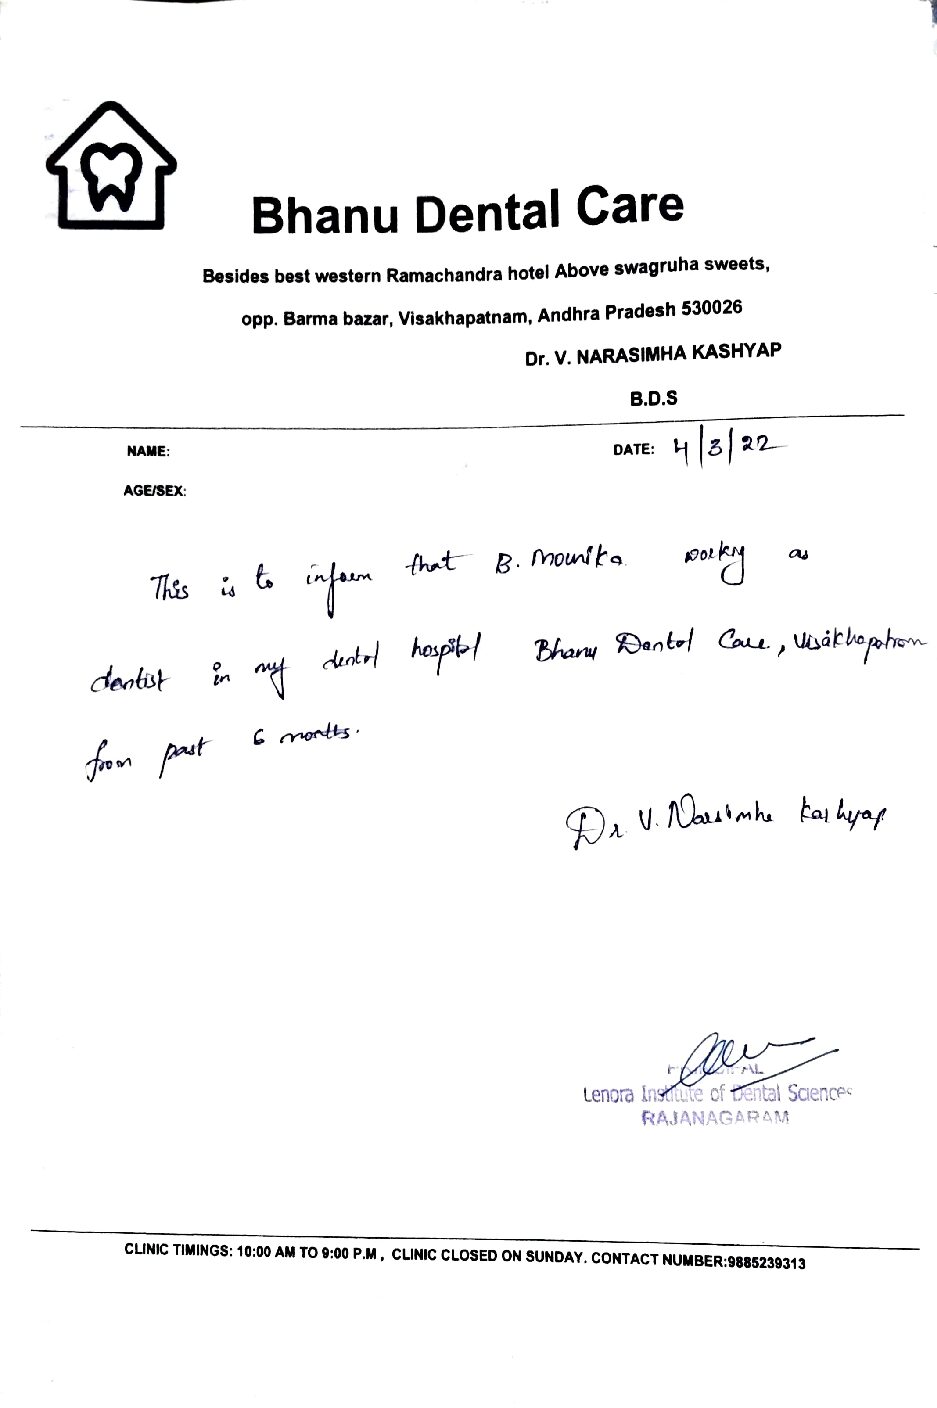 Bhanu Dental Care
Besides best western Ramachandra hotel Above swagruha sweets,
opp. Barma bazar, Visakhapatnam, Andhra Pradesh 530026
Dr. V. NARASIMHA KASHYAP
B.D.S
NAME:
DATE: 4/3/22
AGE/SEX:
This is to inform that B. Mounika as
dentist in my dental hospital Bhanu Dental Care, Visakhapatnam
from past 6 months.
Dr V. Narsimha Kashyap
Lenora Institute of Dental Sciences
RAJANAGARAM
CLINIC TIMINGS: 10:00 AM TO 9:00 P.M , CLINIC CLOSED ON SUNDAY. CONTACT NUMBER:9885239313